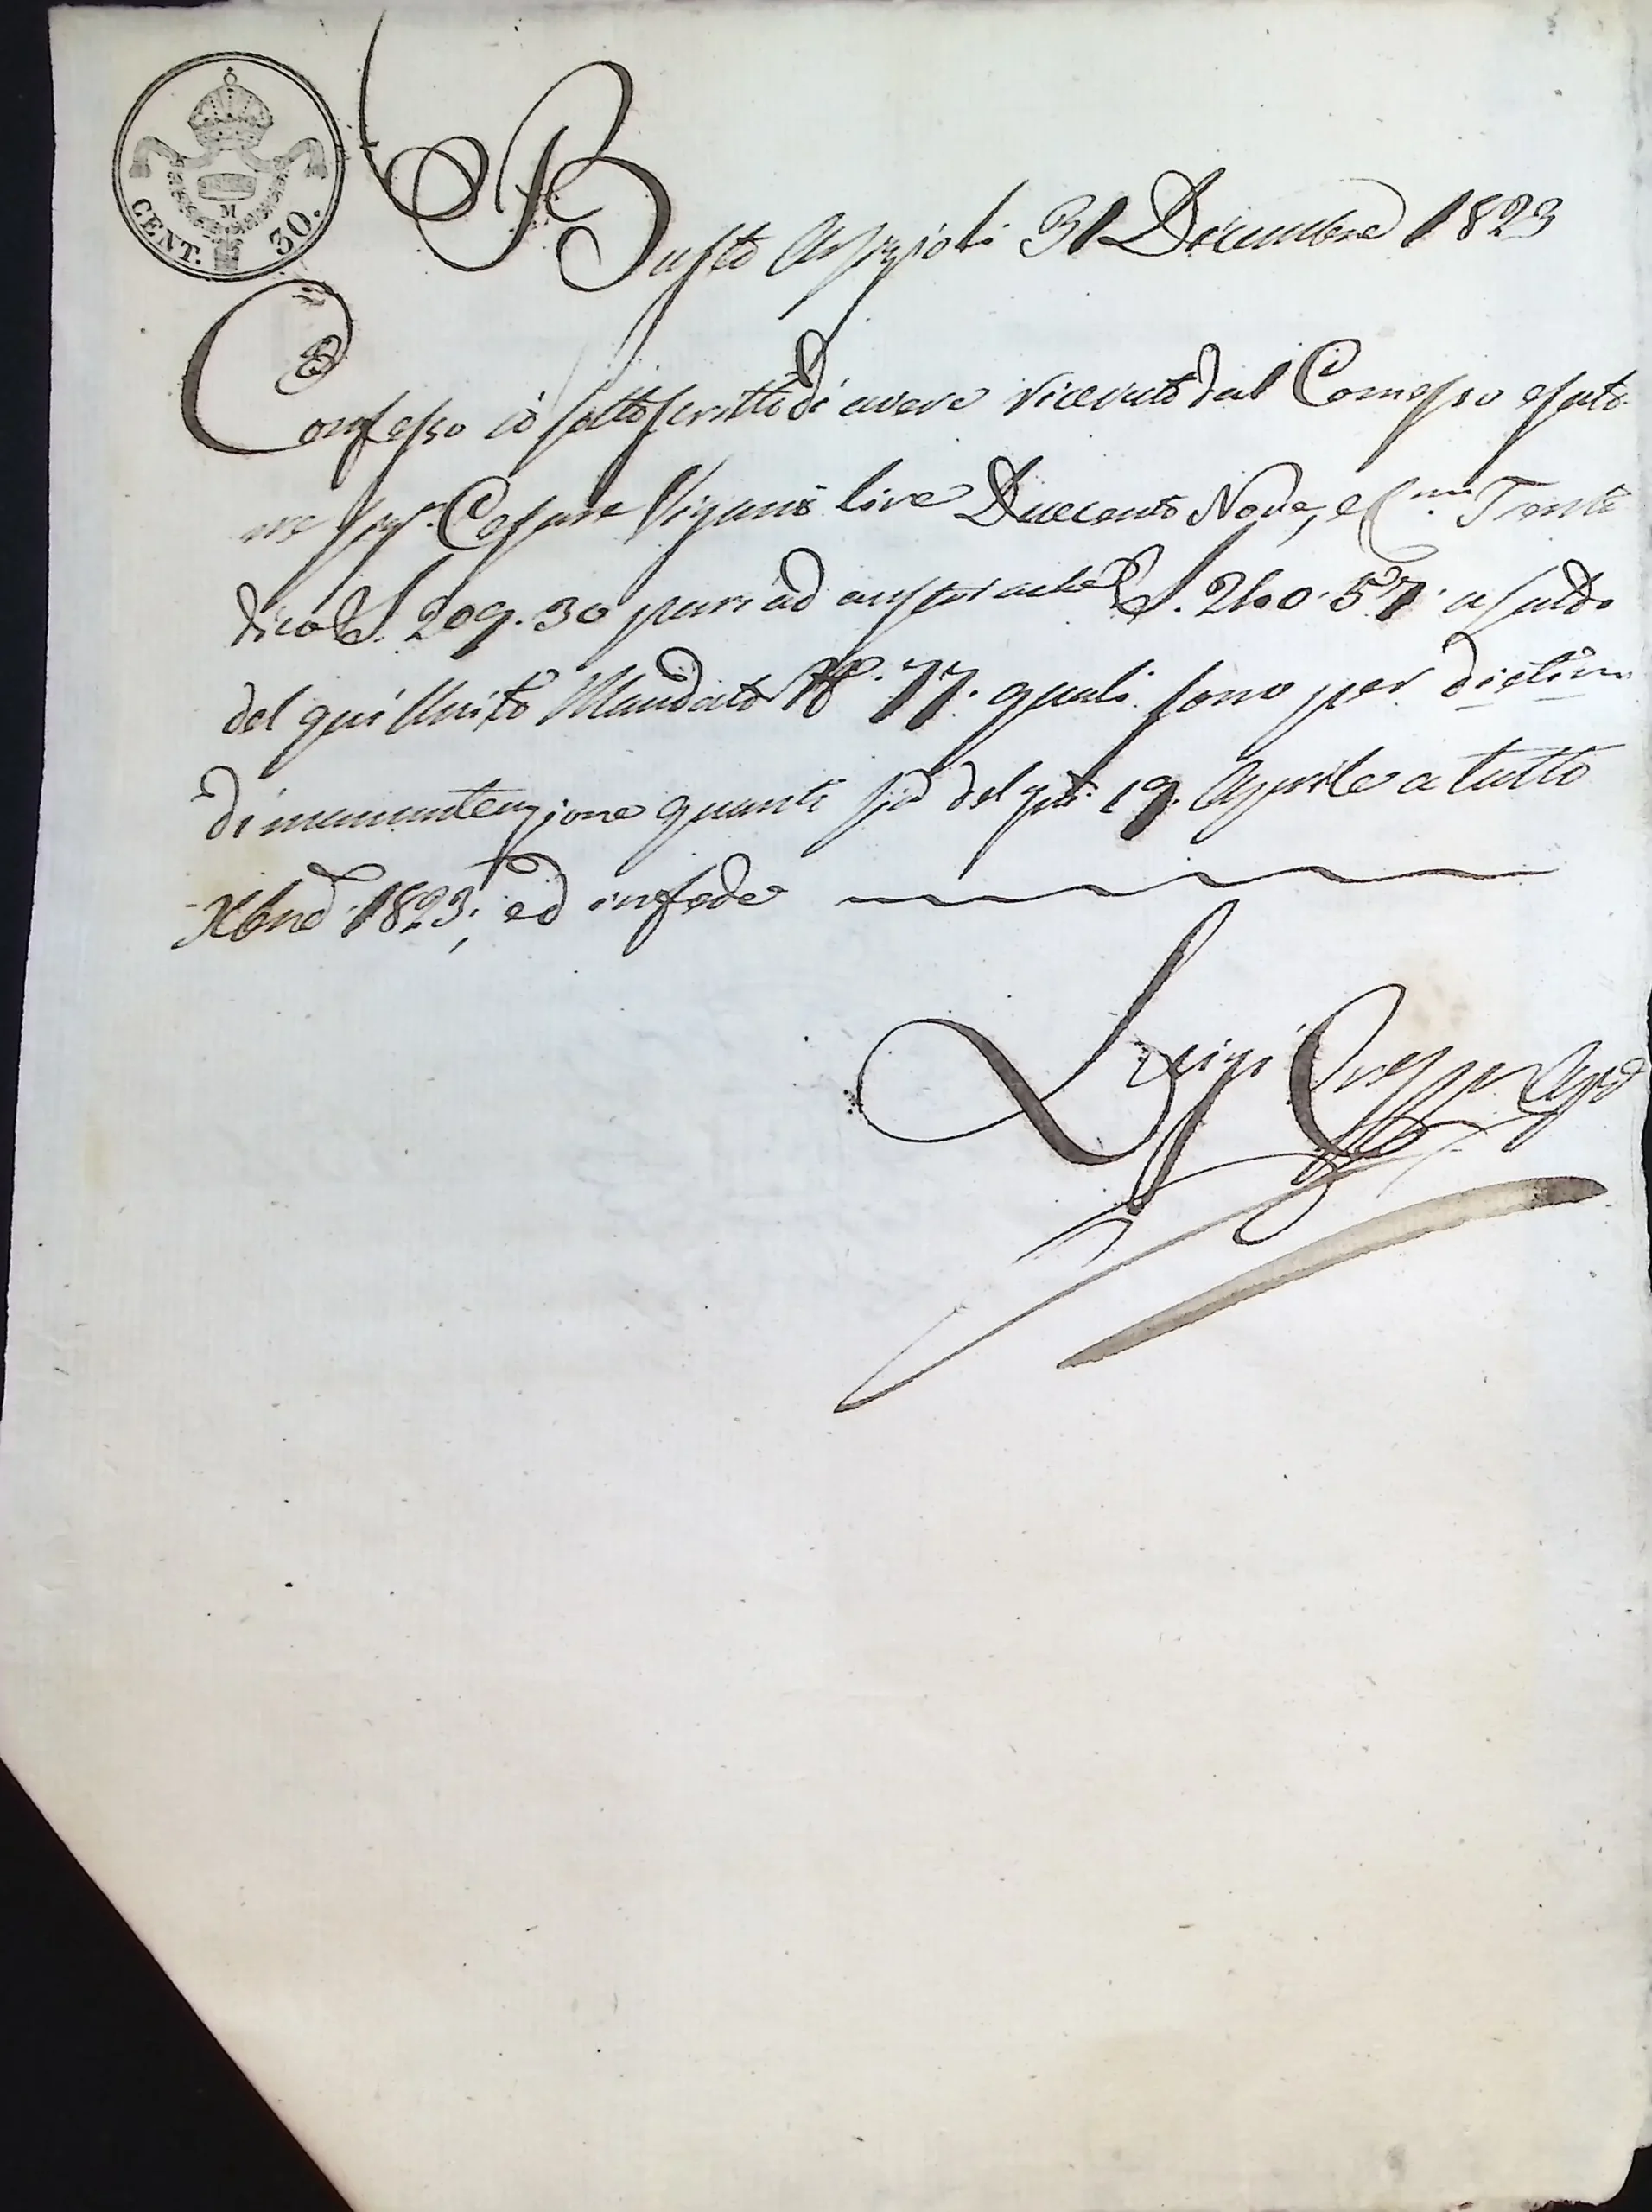 CENT. 30.
M
Busto Arsizio li 31 Dicembre 1823
Confesso io sottoscritto di avere ricevuto dal Comesso esato-
re Sigr. Cesare Viganò lire Duecento Nove, e Cmi Trenta
dico L. 209.30 pari ad austriache L. 240.57. a saldo
del qui Unito Mandato N°. 77. quali sono per
di manutenzione 19. Aprile a tutto
Xbre 1823; ed in fede
Luigi Crespi